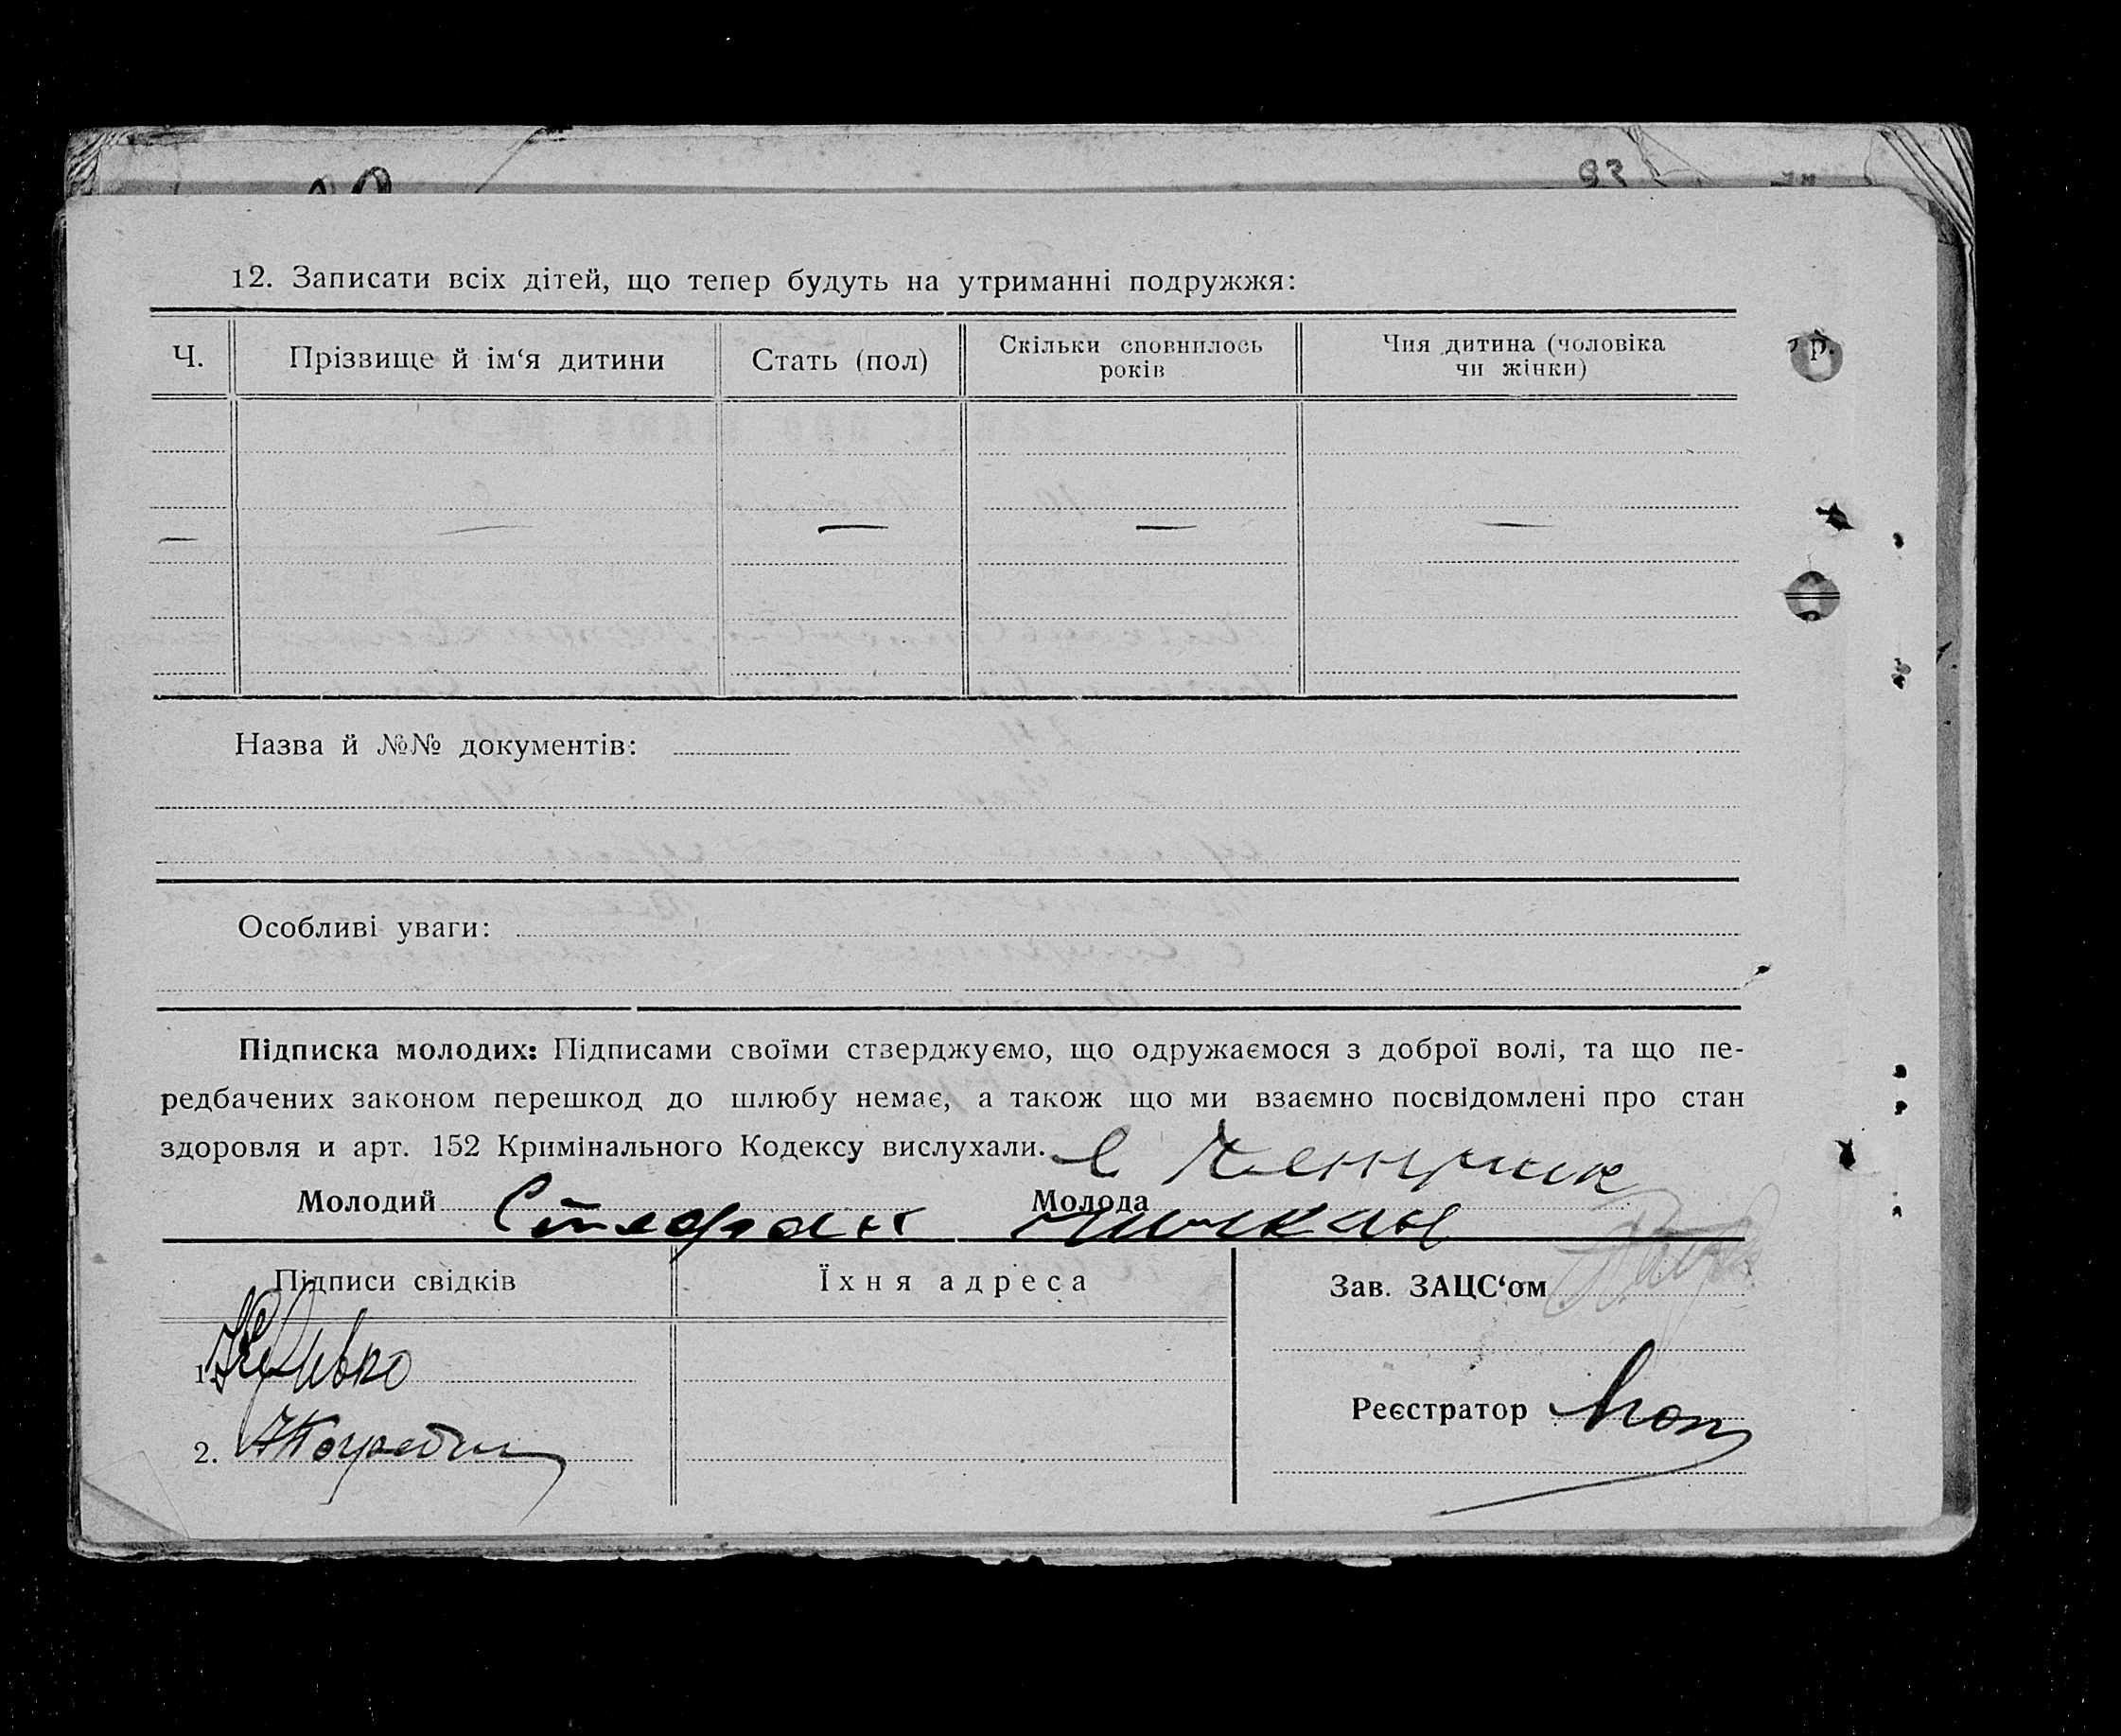 93
12. Записати всіх дітей, що тепер будуть на утриманні подружжя:
Ч. Прізвище й ім‘я дитини Стать (пол) Скільки сповнилось років Чия дитина (чоловіка чи жінки)
— — — — —
р.
Назва й №№ документів:
Особливі уваги:
Підписка молодих: Підписами своїми стверджуємо, що одружаємося з доброї волі, та що пе-
редбачених законом перешкод до шлюбу немає, а також що ми взаємно посвідомлені про стан
здоровля и арт. 152 Кримінального Кодексу вислухали.
Молодий Стефан Молода
Підписи свідків Їхня адреса Зав. ЗАЦС‘ом
1.
Реєстратор
2.